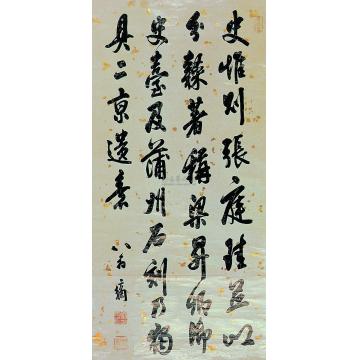 史惟则張庭珪並以
分隸著稱梁昇卿御
史臺及蒲州石刻乃獨
具二京遺意
八翁